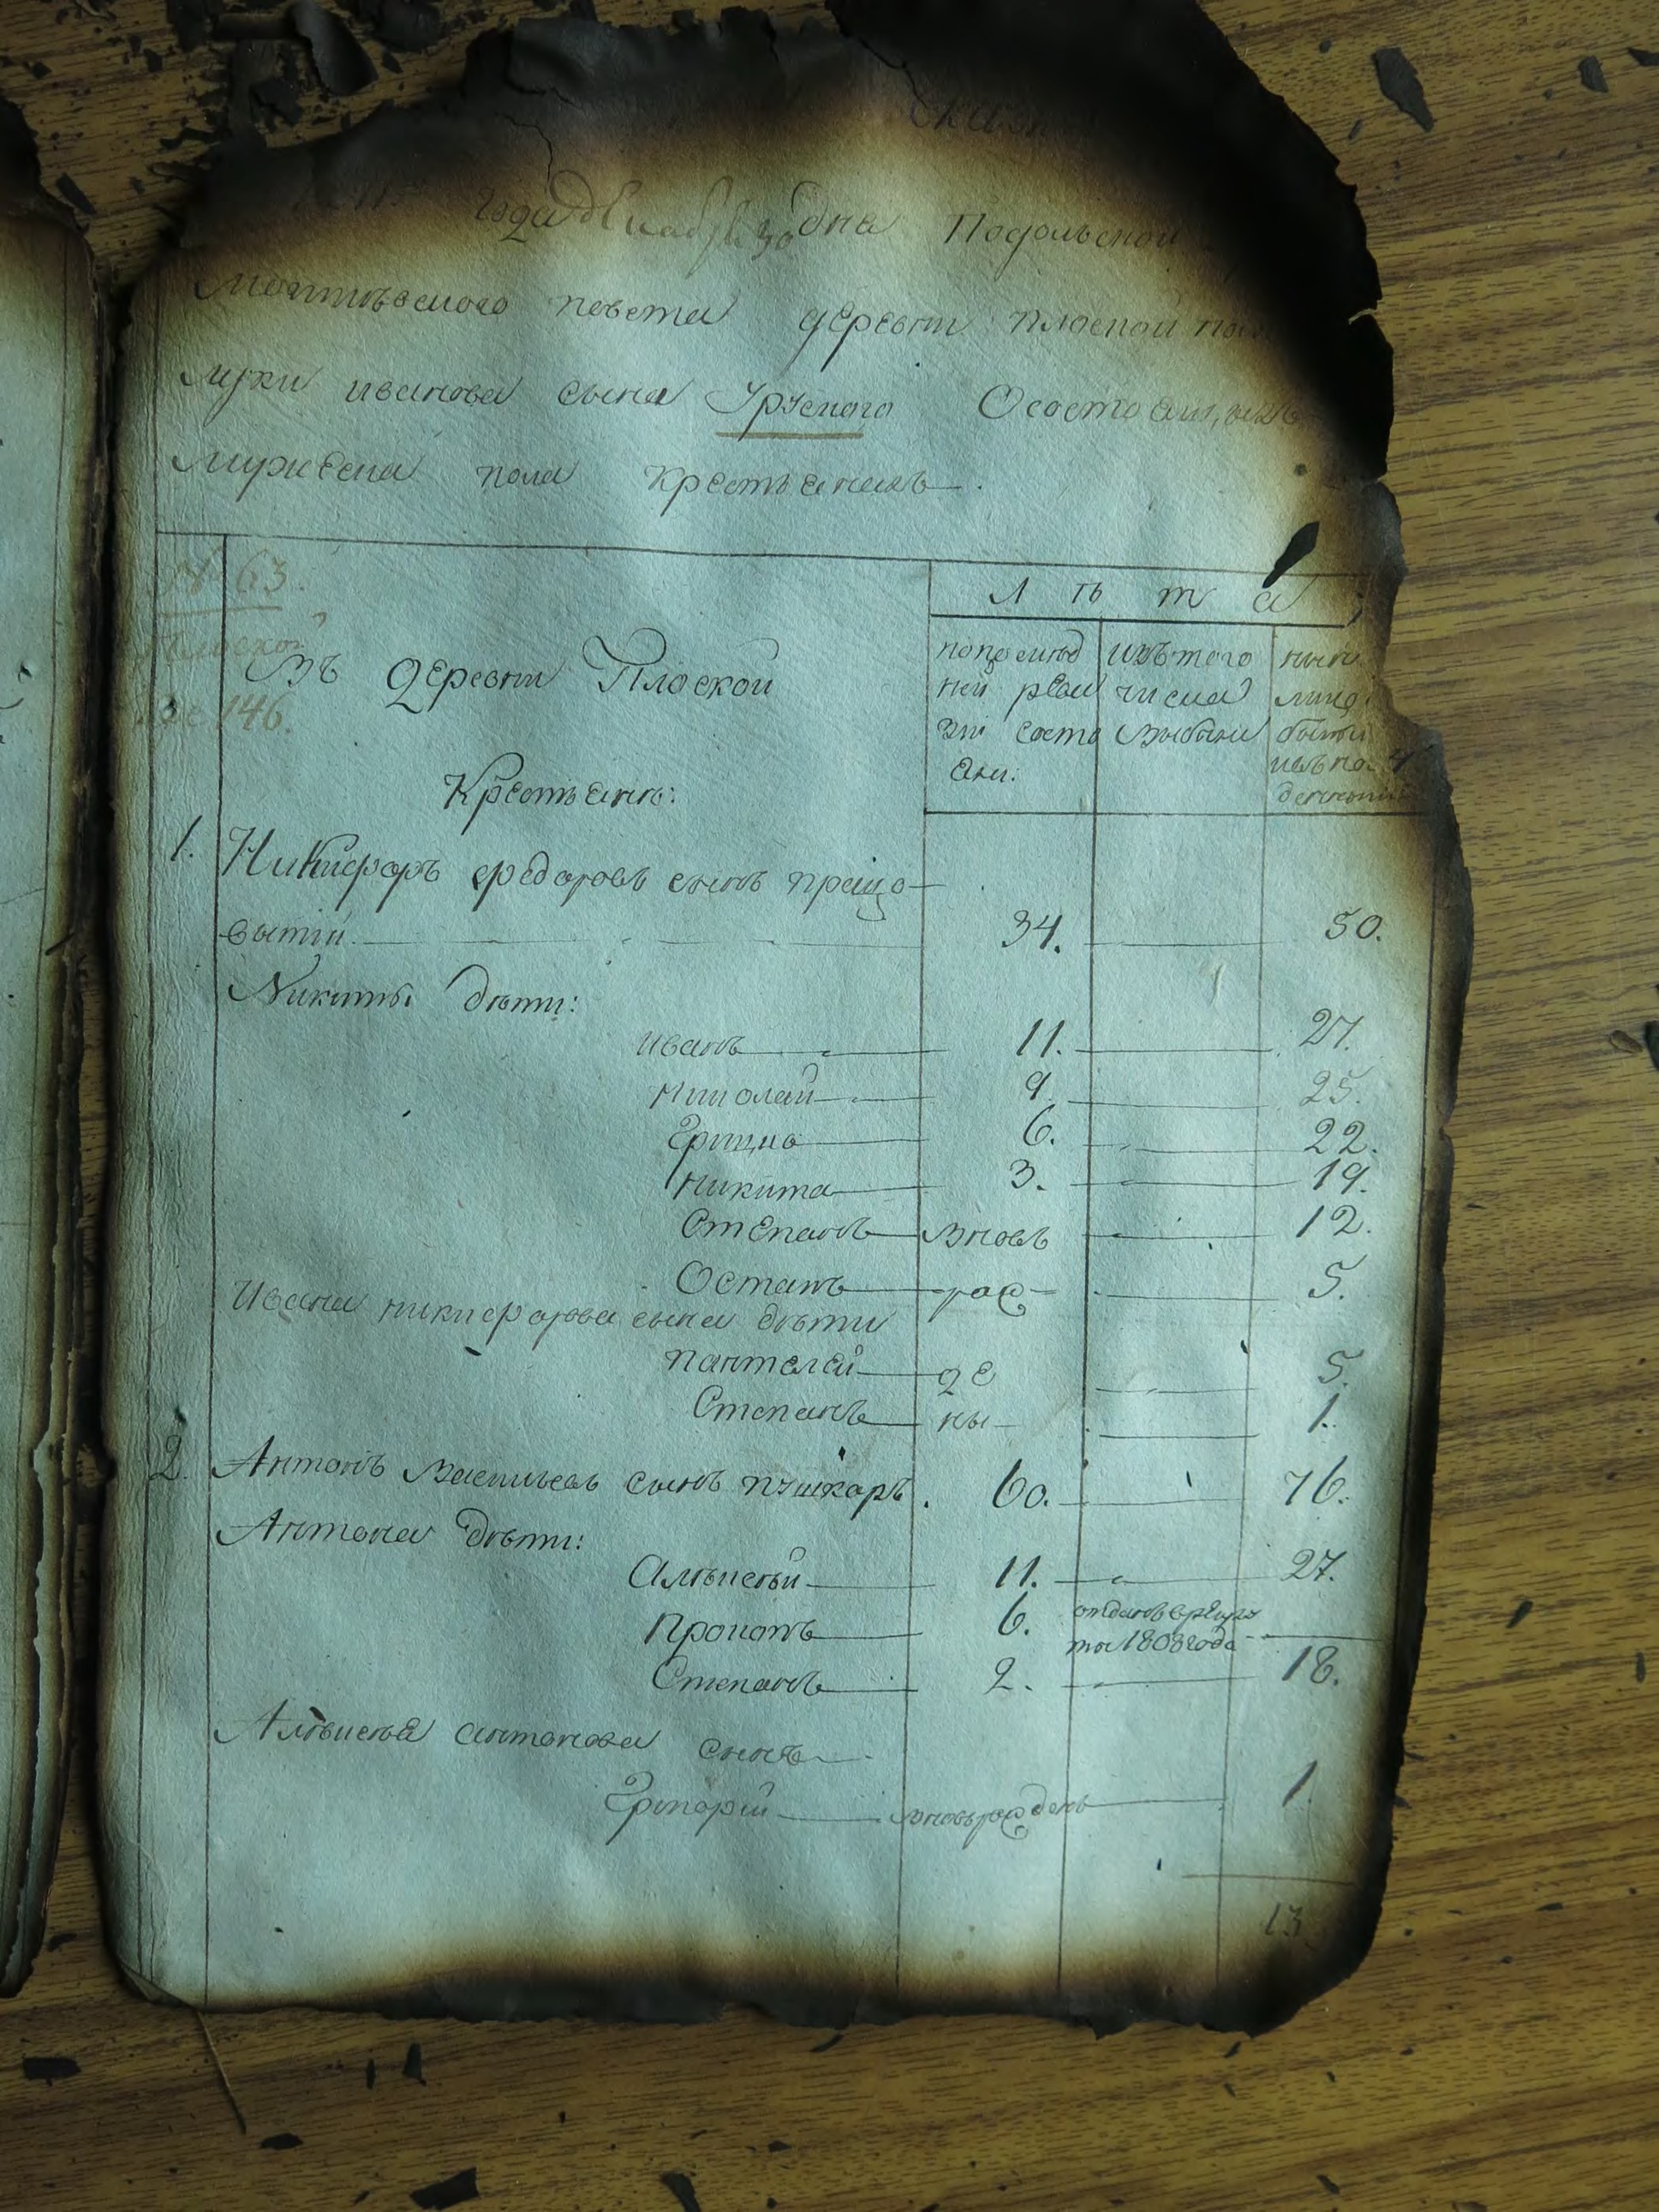 Сказк
года Декабря 30 дня Подольской
повета деревни Плоской
Луки иванова сына Урускаго О состоящихъ
мужеска пола крестьянахъ.
№ 63.
Плоской
146.
Лѣта
Въ деревни Плоской
по последней ревизіи состояли:
изъ того числа выбыли
ныне
Крестьянъ:
1. Никифоръ федоровъ сынъ праще-
ватій 34. 50.
Никиты дѣти:
иванъ 11. 27.
николай 9 25.
Грицко 6. 22.
никита 3. 19.
Степанъ вновь 12.
Остапъ рож 5.
Ивана никифорова сына дѣти
пантелей де 5.
Степанъ ны 1.
2. Антонъ Васильевъ сынъ пушкаръ. 60. 76.
Антона дѣти:
Алѣксѣй 11. 27.
Прокопъ 6. отданъ в рекруты 1808 года
Степанъ 2. 18.
Алѣксѣя антонова сынъ
Григорій вновь рожденъ 1.
13